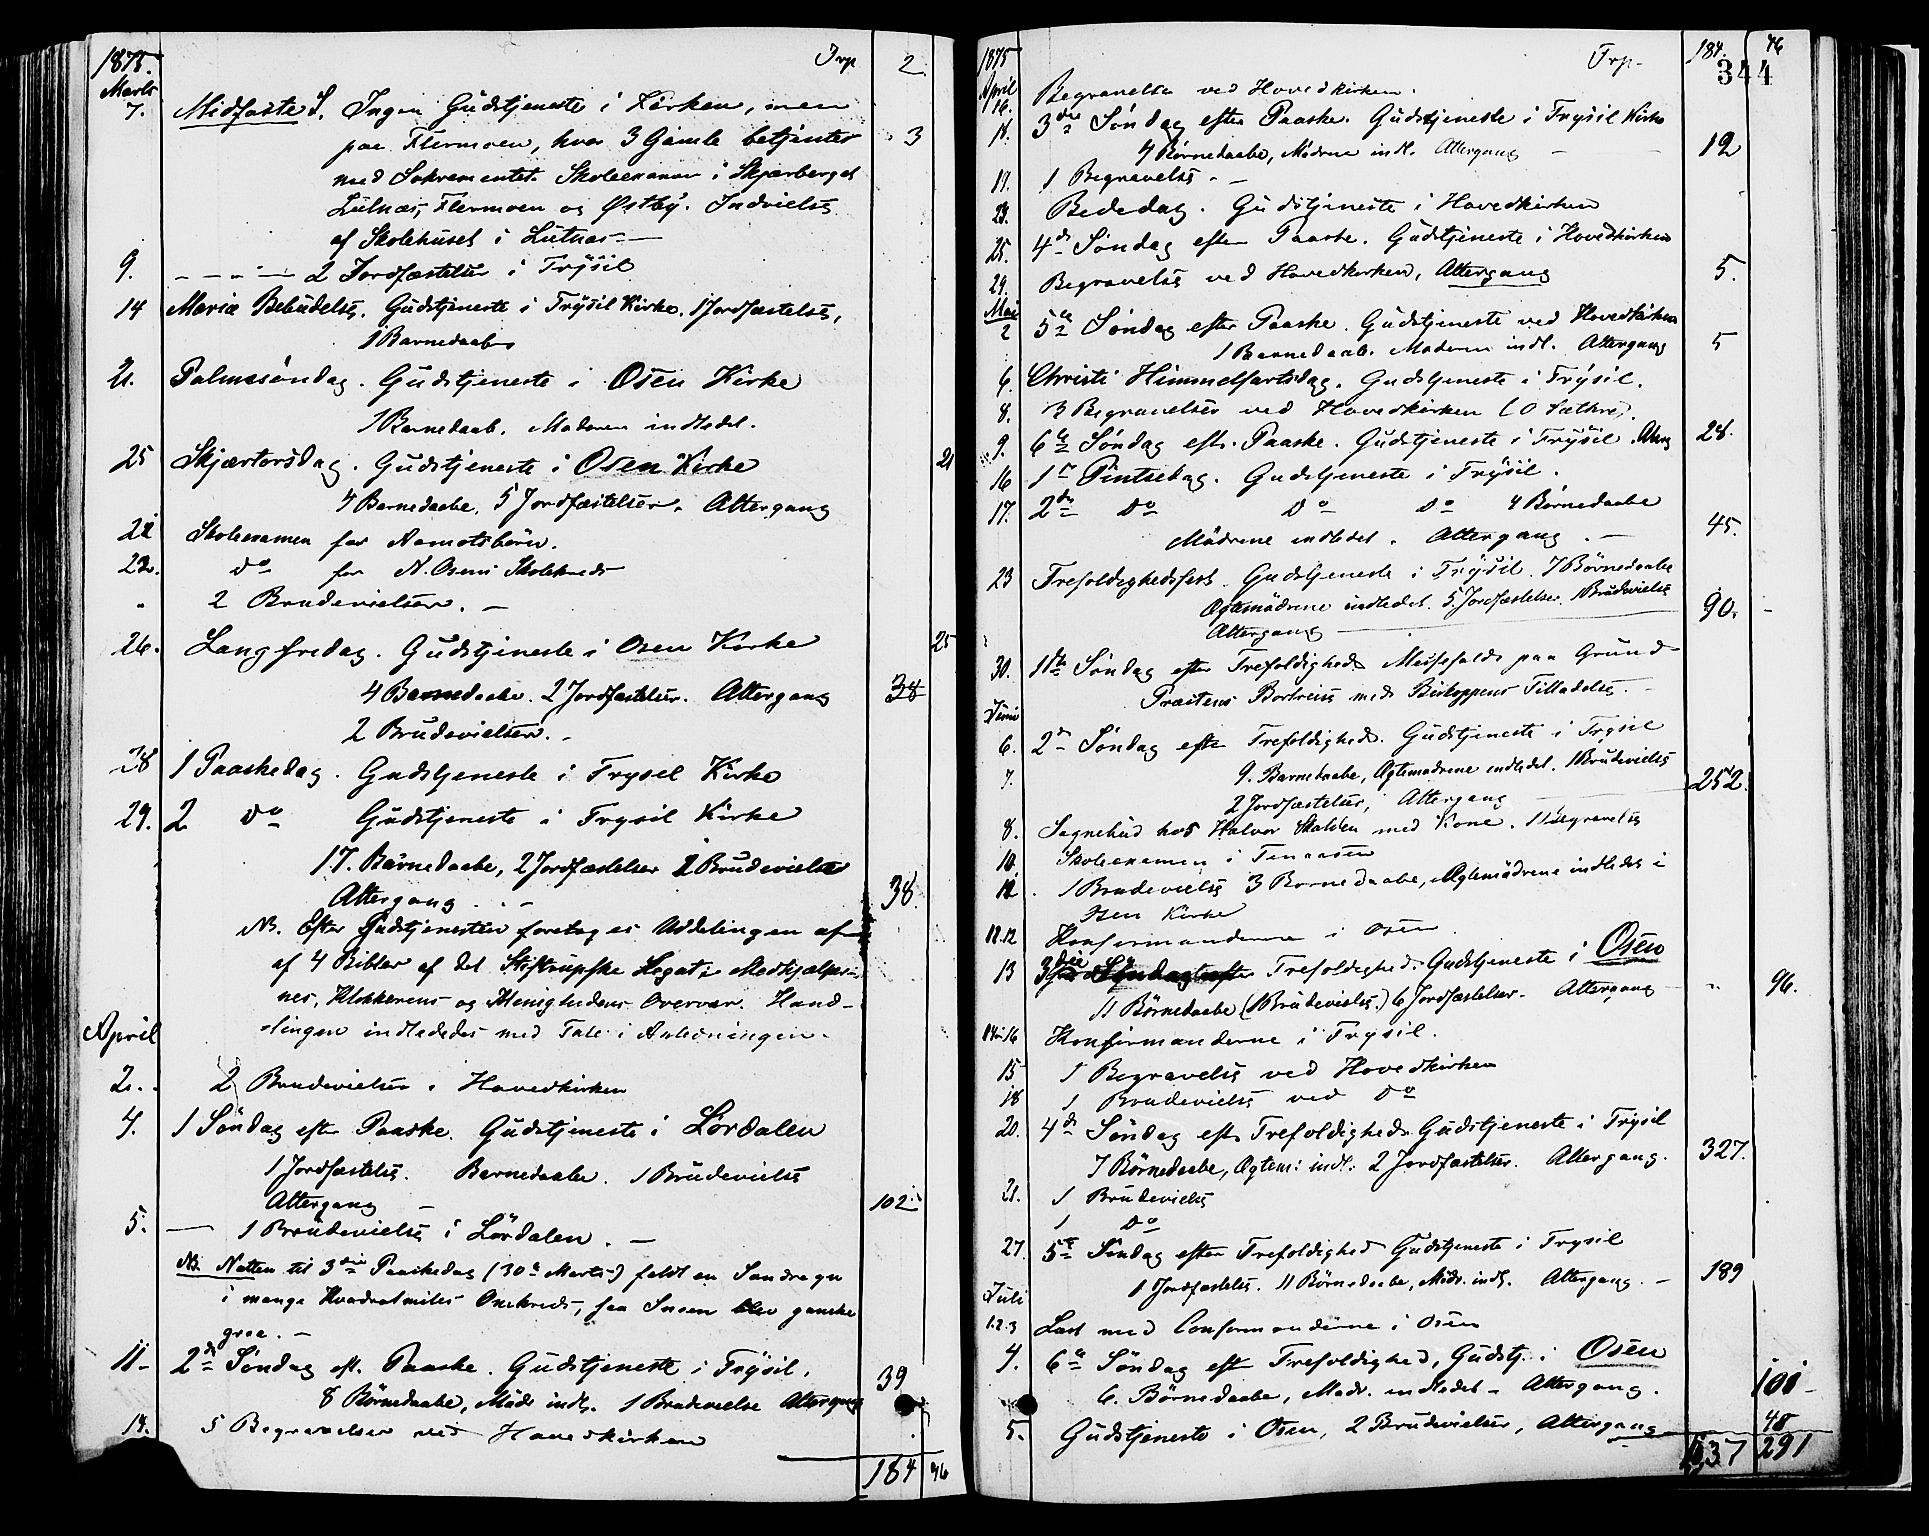 1875. Trp 2
Marts
7. Midfaste S. Ingen Gudstjeneste i Kirken, men
paa Flermoen, hvor 3 Gamle betjentes 3
med Sakramentet. Skoleexamen i Skjærberget
Lutnæs, Flermoen og Østby. Indvielse
af Skolehuset i Lutnæs. —
9. — — — 2 Jordfæstelser i Trysil
14 Mariæ Bebudelse. Gudstjeneste i Trysil Kirke. 1 Jordfæstelse,
1 Barnedaab
21. Palmesøndag. Gudstjeneste i Osen Kirke
1 Barnedaab. Moderen indledet.
25 Skjærtorsdag. Gudstjeneste i Osen Kirke 21
4 Barnedaabe. 5 Jordfæstelser. Altergang
22 Skoleexamen for Aamotsbörn.
22. do for N. Osens Skolekreds
" 2 Brudevielser. —
26. Langfredag. Gudstjeneste i Osen Kirke 25
4 Barnedaabe. 2 Jordfæstelser. Altergang 38
2 Brudevielser. —
28 1 Paaskedag. Gudstjeneste i Trysil Kirke
29. 2 do Gudstjeneste i Trysil Kirke
17. Börnedaabe, 2 Jordfæstelser 2 Brudevielse
Altergang . . — 38.
NB. Efter Gudstjenesten foretoges Uddelingen af
af 4 Bibler af det Stiftrupske Legat i Medhjælper-
nes, Klokkerens og Menighedens Overvær. Hand-
lingen indlededes med Tale i Anledningen.
April
2. 2 Brudevielser i Hovedkirken
4. 1 Söndag efter Paaske. Gudstjeneste i Lördalen
1 Jordfæstelse. Barnedaabe. 1 Brudevielse
Altergang — 102
5. — 1 Brudevielse i Lördalen. —
NB. Natten til 3die Paaskedag (30te Marts) faldt en Sandregn
i mange Kvadratmiles Omkreds, saa Sneen blev ganske
graa. —
11. 2den Söndag eft. Paaske. Gudstjeneste i Trysil.
8 Börnedaabe, Mödr. indl. 1 Brudevielse Altergang 39
14. 5 Begravelser ved Hovedkirken
184 46
1875 Trp. 184. 46
344
April
16. Begravelse ved Hovedkirken.
18. 3die Söndag efter Paaske. Gudstjeneste i Trysil Kirke
4 Börnedaabe, Mödrene indl. Altergang — 12
19. 1 Begravelse. —
23. Bededag. Gudstjeneste i Hovedkirken
25. 4de Söndag efter Paaske. Gudstjeneste i Hovedkirken
29. Begravelse ved Hovedkirken, Altergang 5.
Mai
2 5te Söndag efter Paaske. Gudstjeneste ved Hovedkirken
1 Barnedaab. Moderen indl. Altergang 5
6. Christi Himmelfartsdag. Gudstjeneste i Trysil.
8. 3 Begravelser ved Hovedkirken (O Sæthre).
9. 6te Söndag eft. Paaske. Gudstjeneste i Trysil. Alterg 28.
16 1ste Pintsedag. Gudstjeneste i Trysil.
17. 2den do do do 4 Börnedaabe
Mödrene indledet. Altergang. — 45.
23 Trefoldighedsfest. Gudstjeneste i Trysil. 7 Börnedaabe
Ægtemödrene indledet. 5 Jordfæstelser. 1 Brudevielse
Altergang — 90.
30. 1ste Söndag efter Trefoldighed Messefald paa Grund
Præstens Bortreise med Biskoppens Tilladelse. —
Juni
6. 2den Söndag efter Trefoldighed. Gudstjeneste i Trysil
7. 9. Barnedaabe, Ægtemödrene indledet. 1 Brudevielse
2 Jordfæstelser, Altergang — 252.
8. Sognebud hos Halvor med Kone. 1 Begravelse
10. Skoleexamen i
12. 1 Brudevielse 3 Barnedaabe, Ægtemödrene indledet i
Osen Kirke
11.12 Konfirmanderne i Osen
13 3die Söndag efter Trefoldighed. Gudstjeneste i Osen
11 Börnedaabe (1 Brudevielse.) 6 Jordfæstelser. Altergang — " 96.
14-16 Konfirmanderne i Trysil.
15 1 Begravelse ved Hovedkirken
18 1 Brudevielse ved do
20. 4de Söndag eft. Trefoldighed. Gudstjeneste i Trysil
7 Börnedaabe, Ægtem: indl: 2 Jordfæstelser. Altergang. 327.
21. 1 Brudevielse
1 do
27. 5te Söndag efter Trefoldighed Gudstjeneste i Trysil
1 Jordfæstelse. 11 Börnedaabe, Mödr. indl. Altergang. — 189
Juli
1.2.3 Læst med Confirmanderne i Osen
4. 6te Söndag eft Trefoldighed, Gudstj. i Osen
6. Börnedaabe, Mödr. indledet — Altergang. 101
5. Gudstjeneste i Osen, 2 Brudevielser, Altergang 48
291